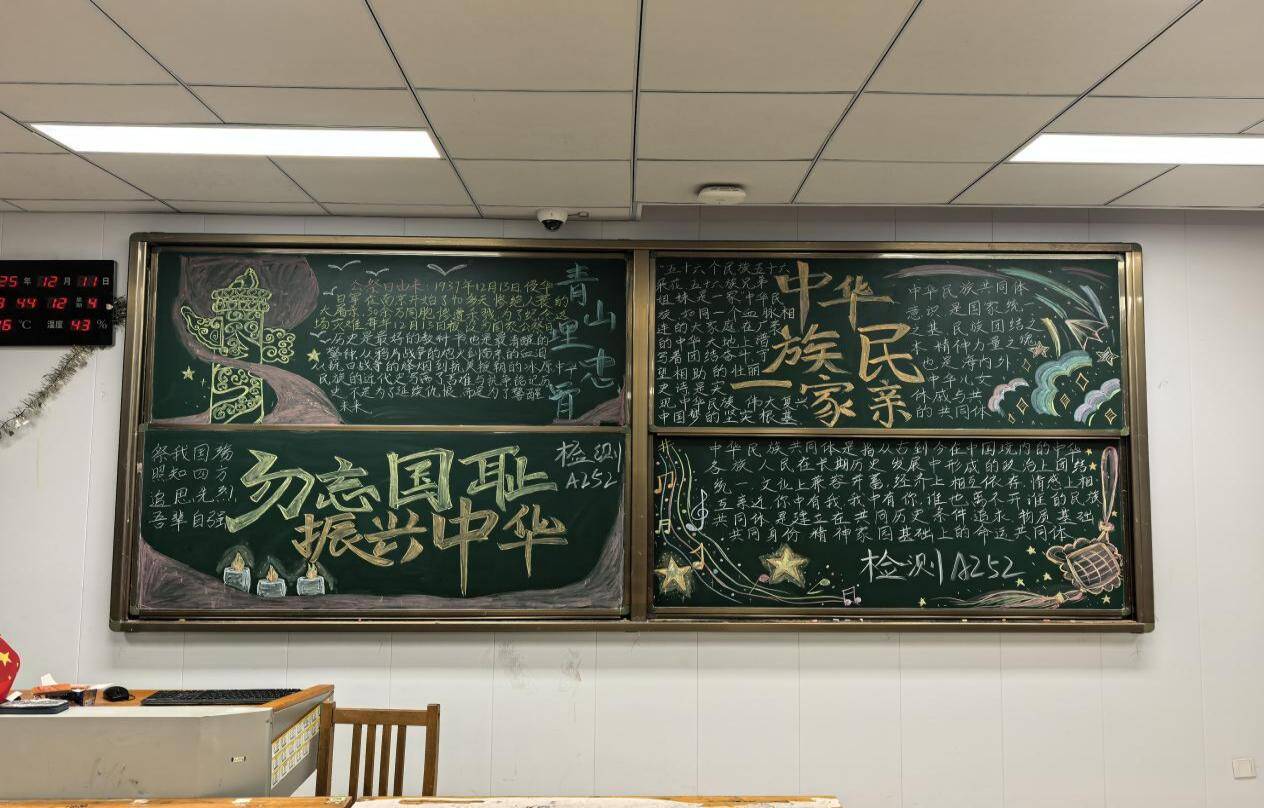 25 年 12 月 11 日
44 12 星期 4
6 ℃ 湿度 43 %
公祭日由来:1937年12月13日侵华
日军在南京开始了40多天惨绝人寰的
大屠杀,30多万同胞惨遭杀戮,为了纪念这
场灾难,每年12月13日被设为国家公祭日
历史是最好的教科书也是最清醒的
青山埋忠骨
祭我国殇
照知四方
追思先烈
吾辈自强
勿忘国耻
振兴中华
检测
A252
五十六个民族五十六
枝花 五十六族兄弟
姐妹是一家 中华民
族如同一个血脉相
连的大家庭 在广袤
的中华大地上谱
写着团结奋斗守
望相助的壮丽
史诗 是实
现中华民族 伟大复兴
中国梦的坚实根基
中华
民族
一家亲
中华民族共同体
意识 是国家统一
之基 民族团结之
本 精神力量之魂
也是海内外
中华儿女
休戚与共
的共同体
中华民族共同体是指从古到今在中国境内的中华
各族人民在长期历史发展中形成的政治上团结
统一,文化上兼容并蓄,经济上相互依存,情感上相
互亲近,你中有我,我中有你,谁也离不开谁的民族
共同体 是建立在共同历史条件 追求 物质基础
共同身份 精神家园基础上的命运共同体
检测A252